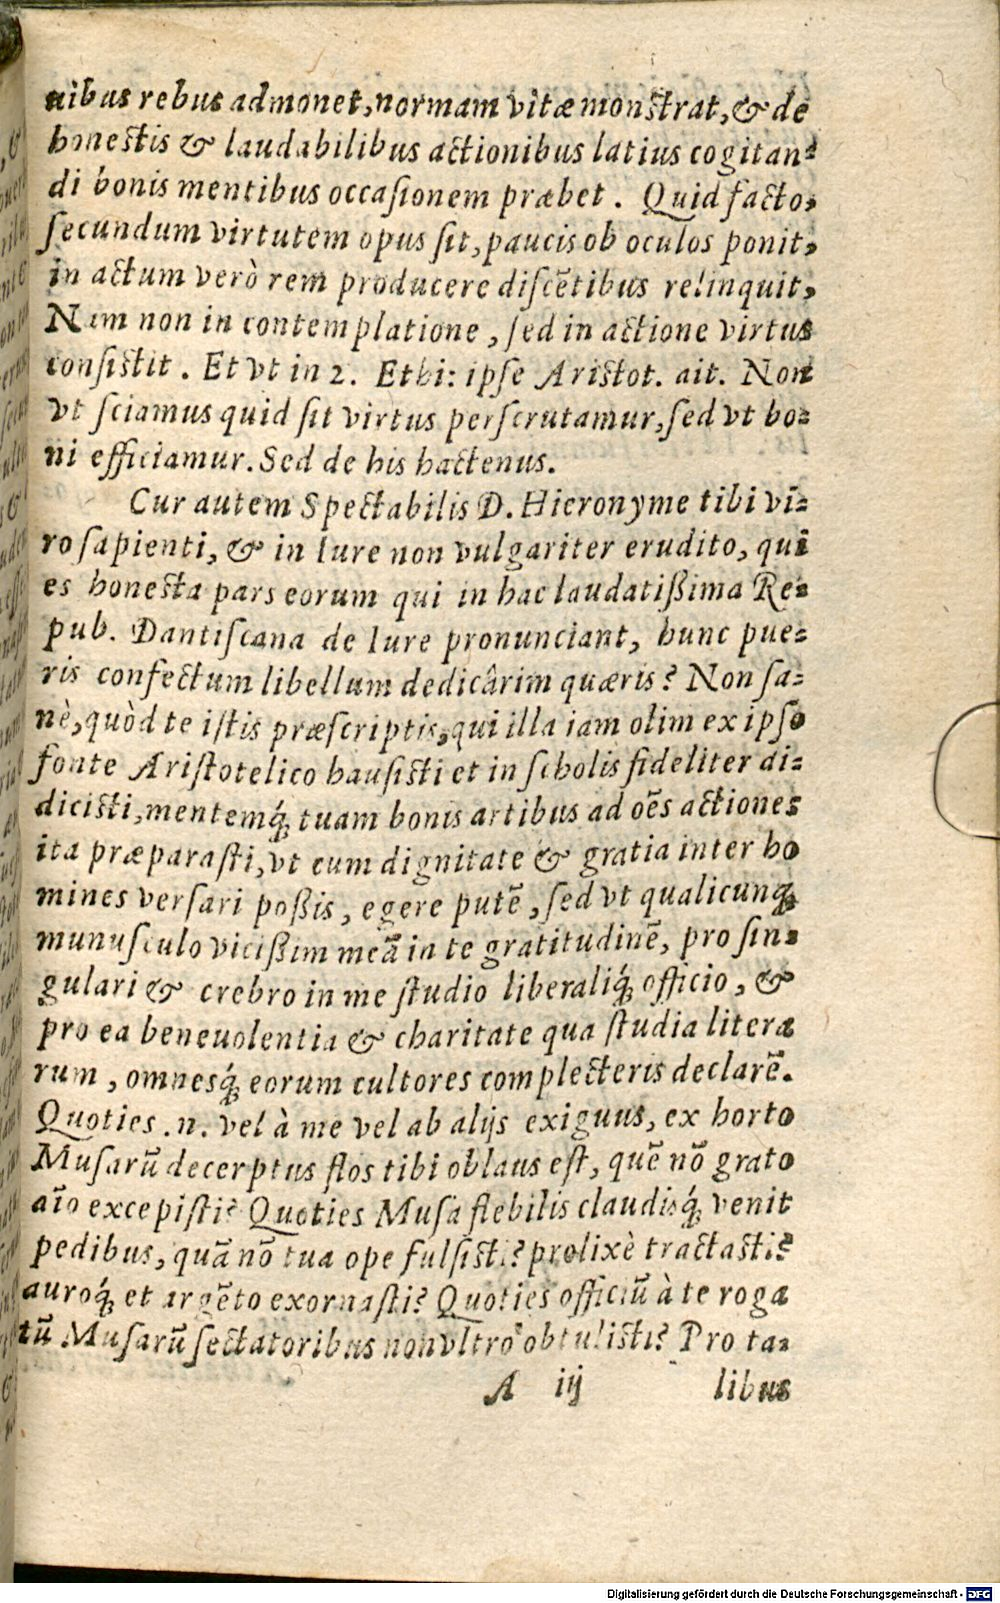 uibus rebus admonet, normam vitæ monstrat, & de
honestis & laudabilibus actionibus latius cogitan-
di bonis mentibus occaſionem præbet . Quid facto,
ſecundum virtutem opus ſit, paucis ob oculos ponit,
in actum verò rem producere diſcẽtibus relinquit,
Nam non in contemplatione , ſed in actione virtus
conſistit . Et vt in 2. Ethi: ipſe Aristot. ait. Non
vt ſciamus quid ſit virtus perſcrutamur, ſed vt bo-
ni efficiamur. Sed de his hactenus.
Cur autem Spectabilis D. Hieronyme tibi vi-
ro ſapienti, & in Iure non vulgariter erudito, qui
es honesta pars eorum qui in hac laudatißima Re-
pub. Dantiſcana de Iure pronunciant, hunc pue-
ris confectum libellum dedicârim quæris? Non ſa-
nè, quòd te iſtis præſcriptis, qui illa iam olim ex ipſo
fonte Ariſtotelico hauſisti et in ſcholis fideliter di-
dicisti, mentemq́; tuam bonis artibus ad oẽs actiones
ita præparaſti, vt cum dignitate & gratia inter ho
mines verſari poßis, egere putẽ , ſed vt qualicunq;
munuſculo vicißim meã in te gratitudinẽ, pro ſin-
gulari & crebro in me ſtudio liberaliq́; officio , &
pro ea beneuolentia & charitate qua ſtudia litera
rum , omnesq́; eorum cultores complecteris declarẽ.
Quoties .n. vel à me vel ab alijs exiguus, ex horto
Muſarũ decerptus flos tibi oblaus eſt, quẽ nõ grato
aĩo excepiſti? Quoties Muſa flebilis claudisq́; venit
pedibus, quã nõ tua ope fulſisti? prolixè tractasti?
auroq́; et argẽto exornaſti? Quoties officiũ à te roga
tũ Muſarũ ſectatoribus non vltro obtulisti? Pro ta-
A iij libus
Digitalisierung gefördert durch die Deutsche Forschungsgemeinschaft - DFG